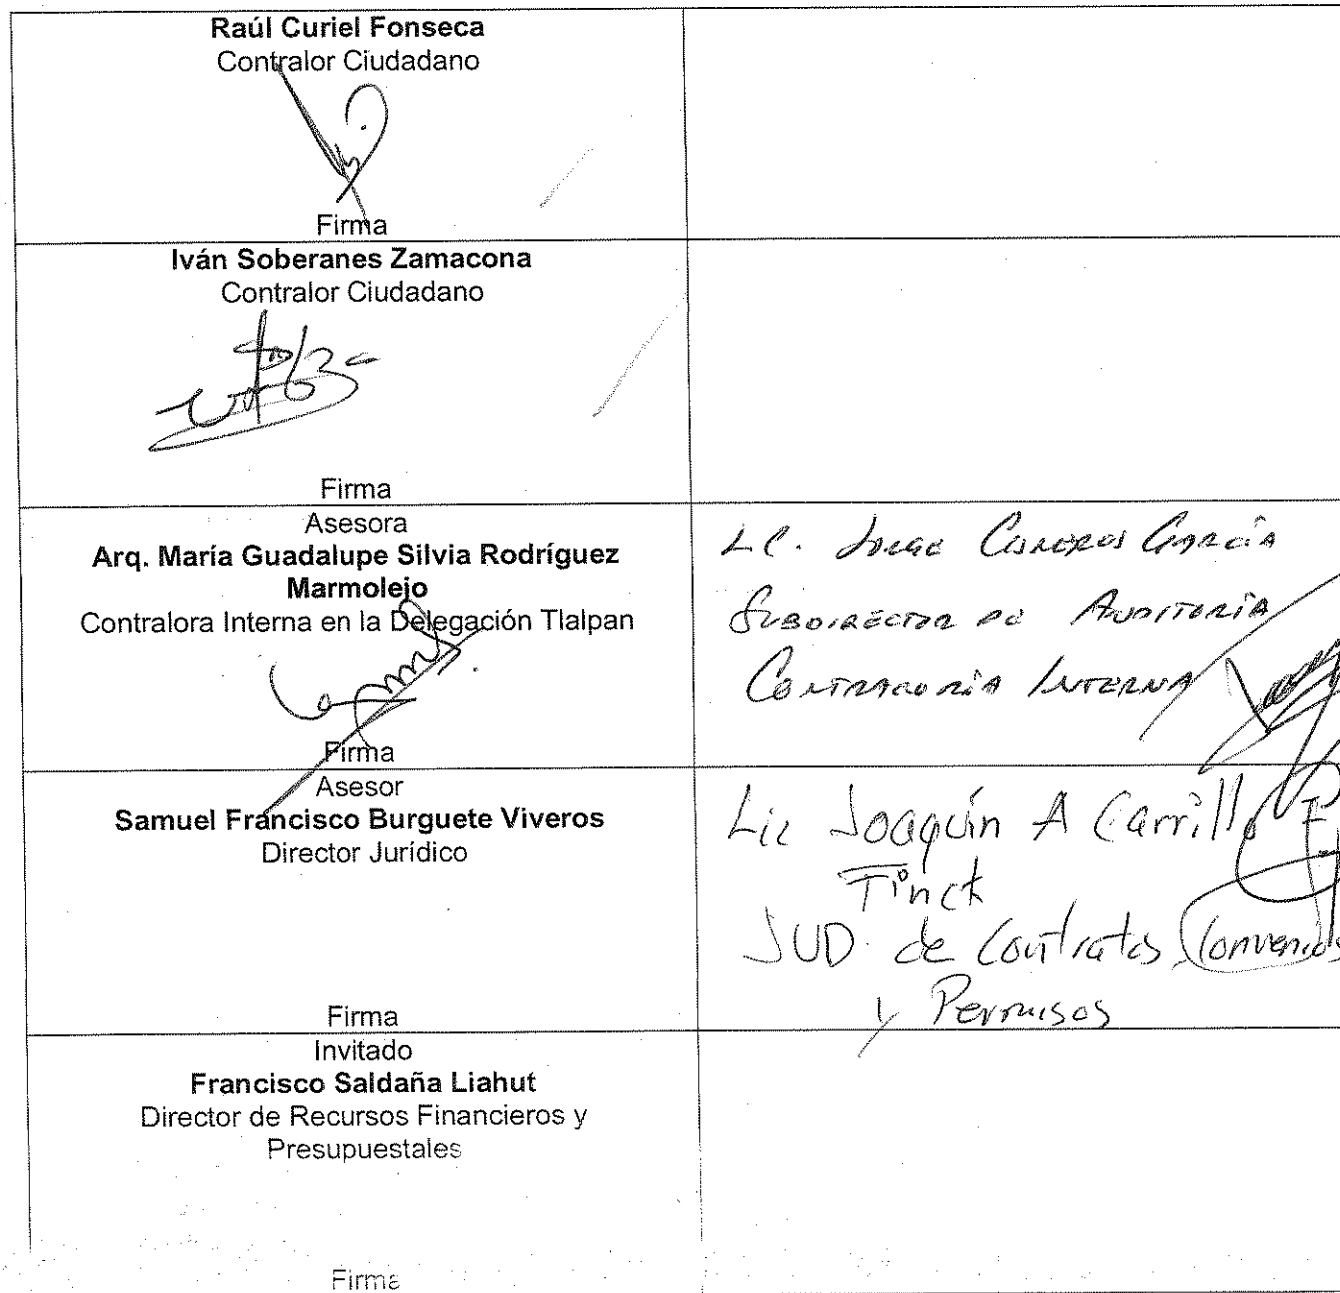 Raúl Curiel Fonseca
Contralor Ciudadano
Firma
Iván Soberanes Zamacona
Contralor Ciudadano
Firma
Asesora
Arq. María Guadalupe Silvia Rodríguez
Marmolejo
Contralora Interna en la Delegación Tlalpan
Firma
LC. Jorge Cisneros García
Subdirector de Auditoría
Contraloría Interna
Asesor
Samuel Francisco Burguete Viveros
Director Jurídico
Firma
Lic Joaquín A Carrillo
Finck
JUD de Contratos, Convenios
y Permisos
Invitado
Francisco Saldaña Liahut
Director de Recursos Financieros y
Presupuestales
Firma